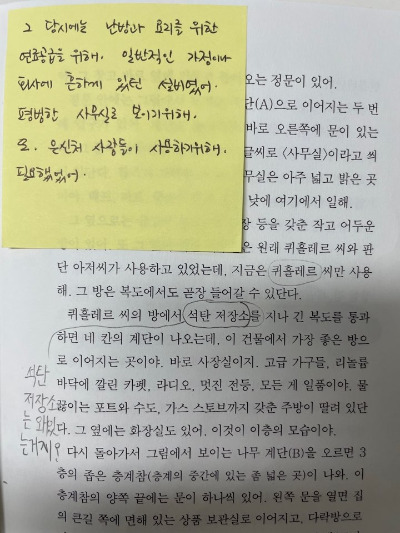 그 당시에는 난방과 요리를 위한
연료공급을 위해. 일반적인 가정이나
회사에 흔하게 있던 설비였어.
평범한 사무실로 보이기위해.
또. 은신처 사람들이 사용하기위해.
필요했었어.
오는 정문이 있어.
단(A)으로 이어지는 두 번
바로 오른쪽에 문이 있는
글씨로 〈사무실〉이라고 씌
무실은 아주 넓고 밝은 곳
낮에 여기에서 일해.
장 등을 갖춘 작고 어두운
은 원래 퀴흘레르 씨와 판
단 아저씨가 사용하고 있었는데, 지금은 퀴흘레르 씨만 사용
해. 그 방은 복도에서도 곧장 들어갈 수 있단다.
퀴흘레르 씨의 방에서 석탄 저장소를 지나 긴 복도를 통과
하면 네 칸의 계단이 나오는데, 이 건물에서 가장 좋은 방으
로 이어지는 곳이야. 바로 사장실이지. 고급 가구들, 리놀륨
바닥에 깔린 카펫, 라디오, 멋진 전등, 모든 게 일품이야. 물
끓이는 포트와 수도, 가스 스토브까지 갖춘 주방이 딸려 있단
다. 그 옆에는 화장실도 있어. 이것이 이층의 모습이야.
다시 돌아가서 그림에서 보이는 나무 계단(B)을 오르면 3
층의 좁은 층계참(층계의 중간에 있는 좀 넓은 곳)이 나와. 이
층계참의 양쪽 끝에는 문이 하나씩 있어. 왼쪽 문을 열면 집
의 큰길 쪽에 면해 있는 상품 보관실로 이어지고, 다락방으로
석탄
저장소
는 왜있
는거지요